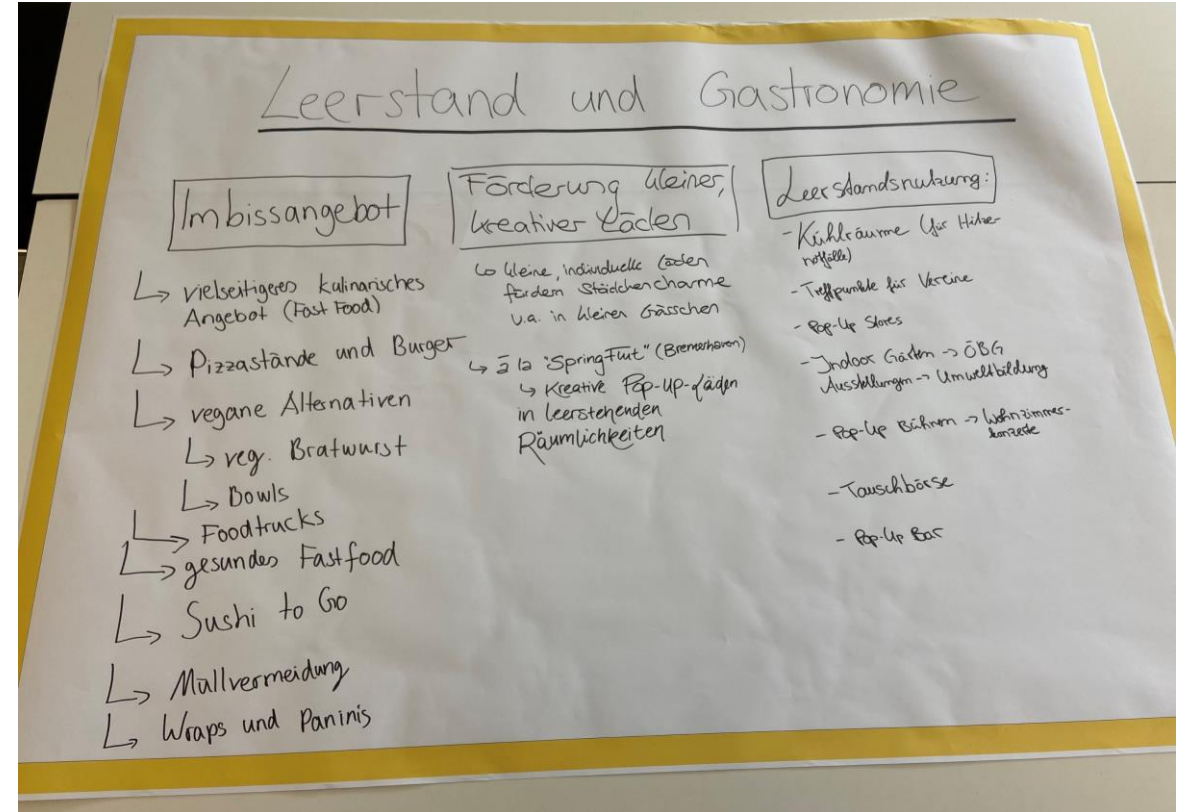 Leerstand und Gastronomie
Imbissangebot
↳ vielseitigeres kulinarisches
Angebot (Fast Food)
↳ Pizzastände und Burger
↳ vegane Alternativen
↳ veg. Bratwurst
↳ Bowls
↳ Foodtrucks
↳ gesundes Fastfood
↳ Sushi to Go
↳ Müllvermeidung
↳ Wraps und Paninis
Förderung kleiner,
kreativer Läden
↳ kleine, individuelle Läden
fördern Städtchencharme
u.a. in kleinen Gässchen
↳ à la "Springflut" (Bremerhaven)
↳ Kreative Pop-Up-Läden
in leerstehenden
Räumlichkeiten
Leerstandsnutzung:
- Kühlräume (für Hitze-
notfälle)
- Treffpunkte für Vereine
- Pop-Up Stores
- Indoor Gärten -> ÖBG
Ausstellungen -> Umweltbildung
- Pop-Up Bühnen -> Wohnzimmer-
konzerte
- Tauschbörse
- Pop-Up Bar